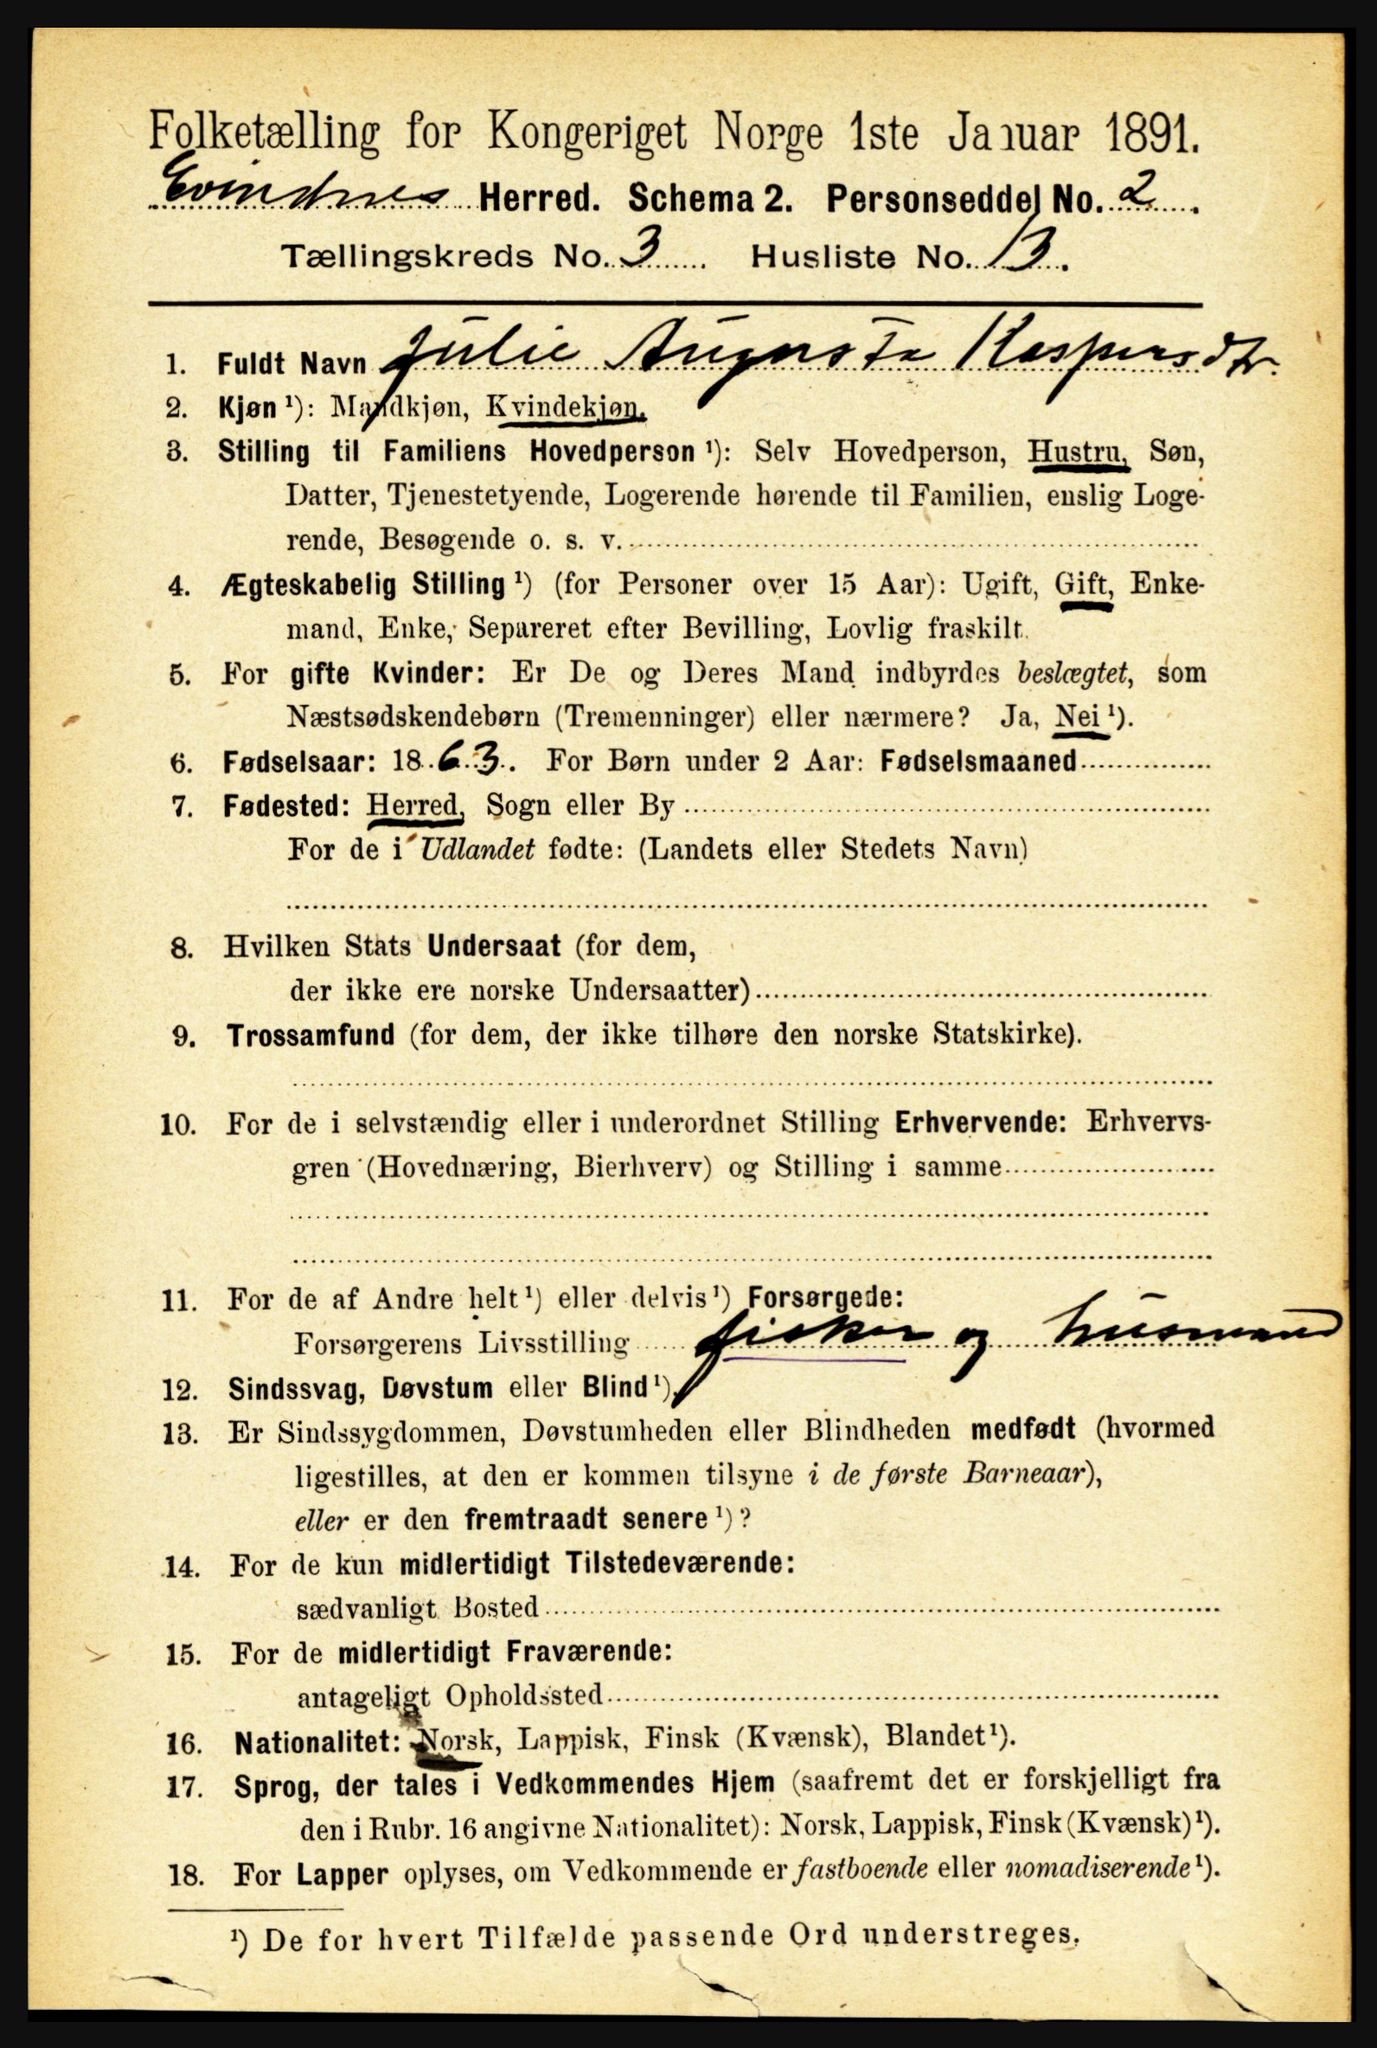 Folketælling for Kongeriget Norge 1ste Januar 1891.
Evindnes Herred. Schema 2. Personseddel No. 2.
Tællingskreds No. 3 Husliste No. 13.
1. Fuldt Navn Julie Augusta Kaspersdtr.
2. Kjøn ¹): Mandkjøn, Kvindekjøn.
3. Stilling til Familiens Hovedperson ¹): Selv Hovedperson, Hustru, Søn,
Datter, Tjenestetyende, Logerende hørende til Familien, enslig Loge-
rende, Besøgende o. s. v.
4. Ægteskabelig Stilling ¹) (for Personer over 15 Aar): Ugift, Gift, Enke-
mand, Enke, Separeret efter Bevilling, Lovlig fraskilt.
5. For gifte Kvinder: Er De og Deres Mand indbyrdes beslægtet, som
Næstsødskendebørn (Tremenninger) eller nærmere? Ja, Nei ¹).
6. Fødselsaar: 1863. For Børn under 2 Aar: Fødselsmaaned
7. Fødested: Herred, Sogn eller By
For de i Udlandet fødte: (Landets eller Stedets Navn)
8. Hvilken Stats Undersaat (for dem,
der ikke ere norske Undersaatter)
9. Trossamfund (for dem, der ikke tilhøre den norske Statskirke).
10. For de i selvstændig eller i underordnet Stilling Erhvervende: Erhvervs-
gren (Hovednæring, Bierhverv) og Stilling i samme
11. For de af Andre helt ¹) eller delvis ¹) Forsørgede:
Forsørgerens Livsstilling fisker og husmand
12. Sindssvag, Døvstum eller Blind ¹).
13. Er Sindssygdommen, Døvstumheden eller Blindheden medfødt (hvormed
ligestilles, at den er kommen tilsyne i de første Barneaar),
eller er den fremtraadt senere ¹)?
14. For de kun midlertidigt Tilstedeværende:
sædvanligt Bosted
15. For de midlertidigt Fraværende:
antageligt Opholdssted
16. Nationalitet: Norsk, Lappisk, Finsk (Kvænsk), Blandet ¹).
17. Sprog, der tales i Vedkommendes Hjem (saafremt det er forskjelligt fra
den i Rubr. 16 angivne Nationalitet): Norsk, Lappisk, Finsk (Kvænsk) ¹).
18. For Lapper oplyses, om Vedkommende er fastboende eller nomadiserende ¹).
¹) De for hvert Tilfælde passende Ord understreges.